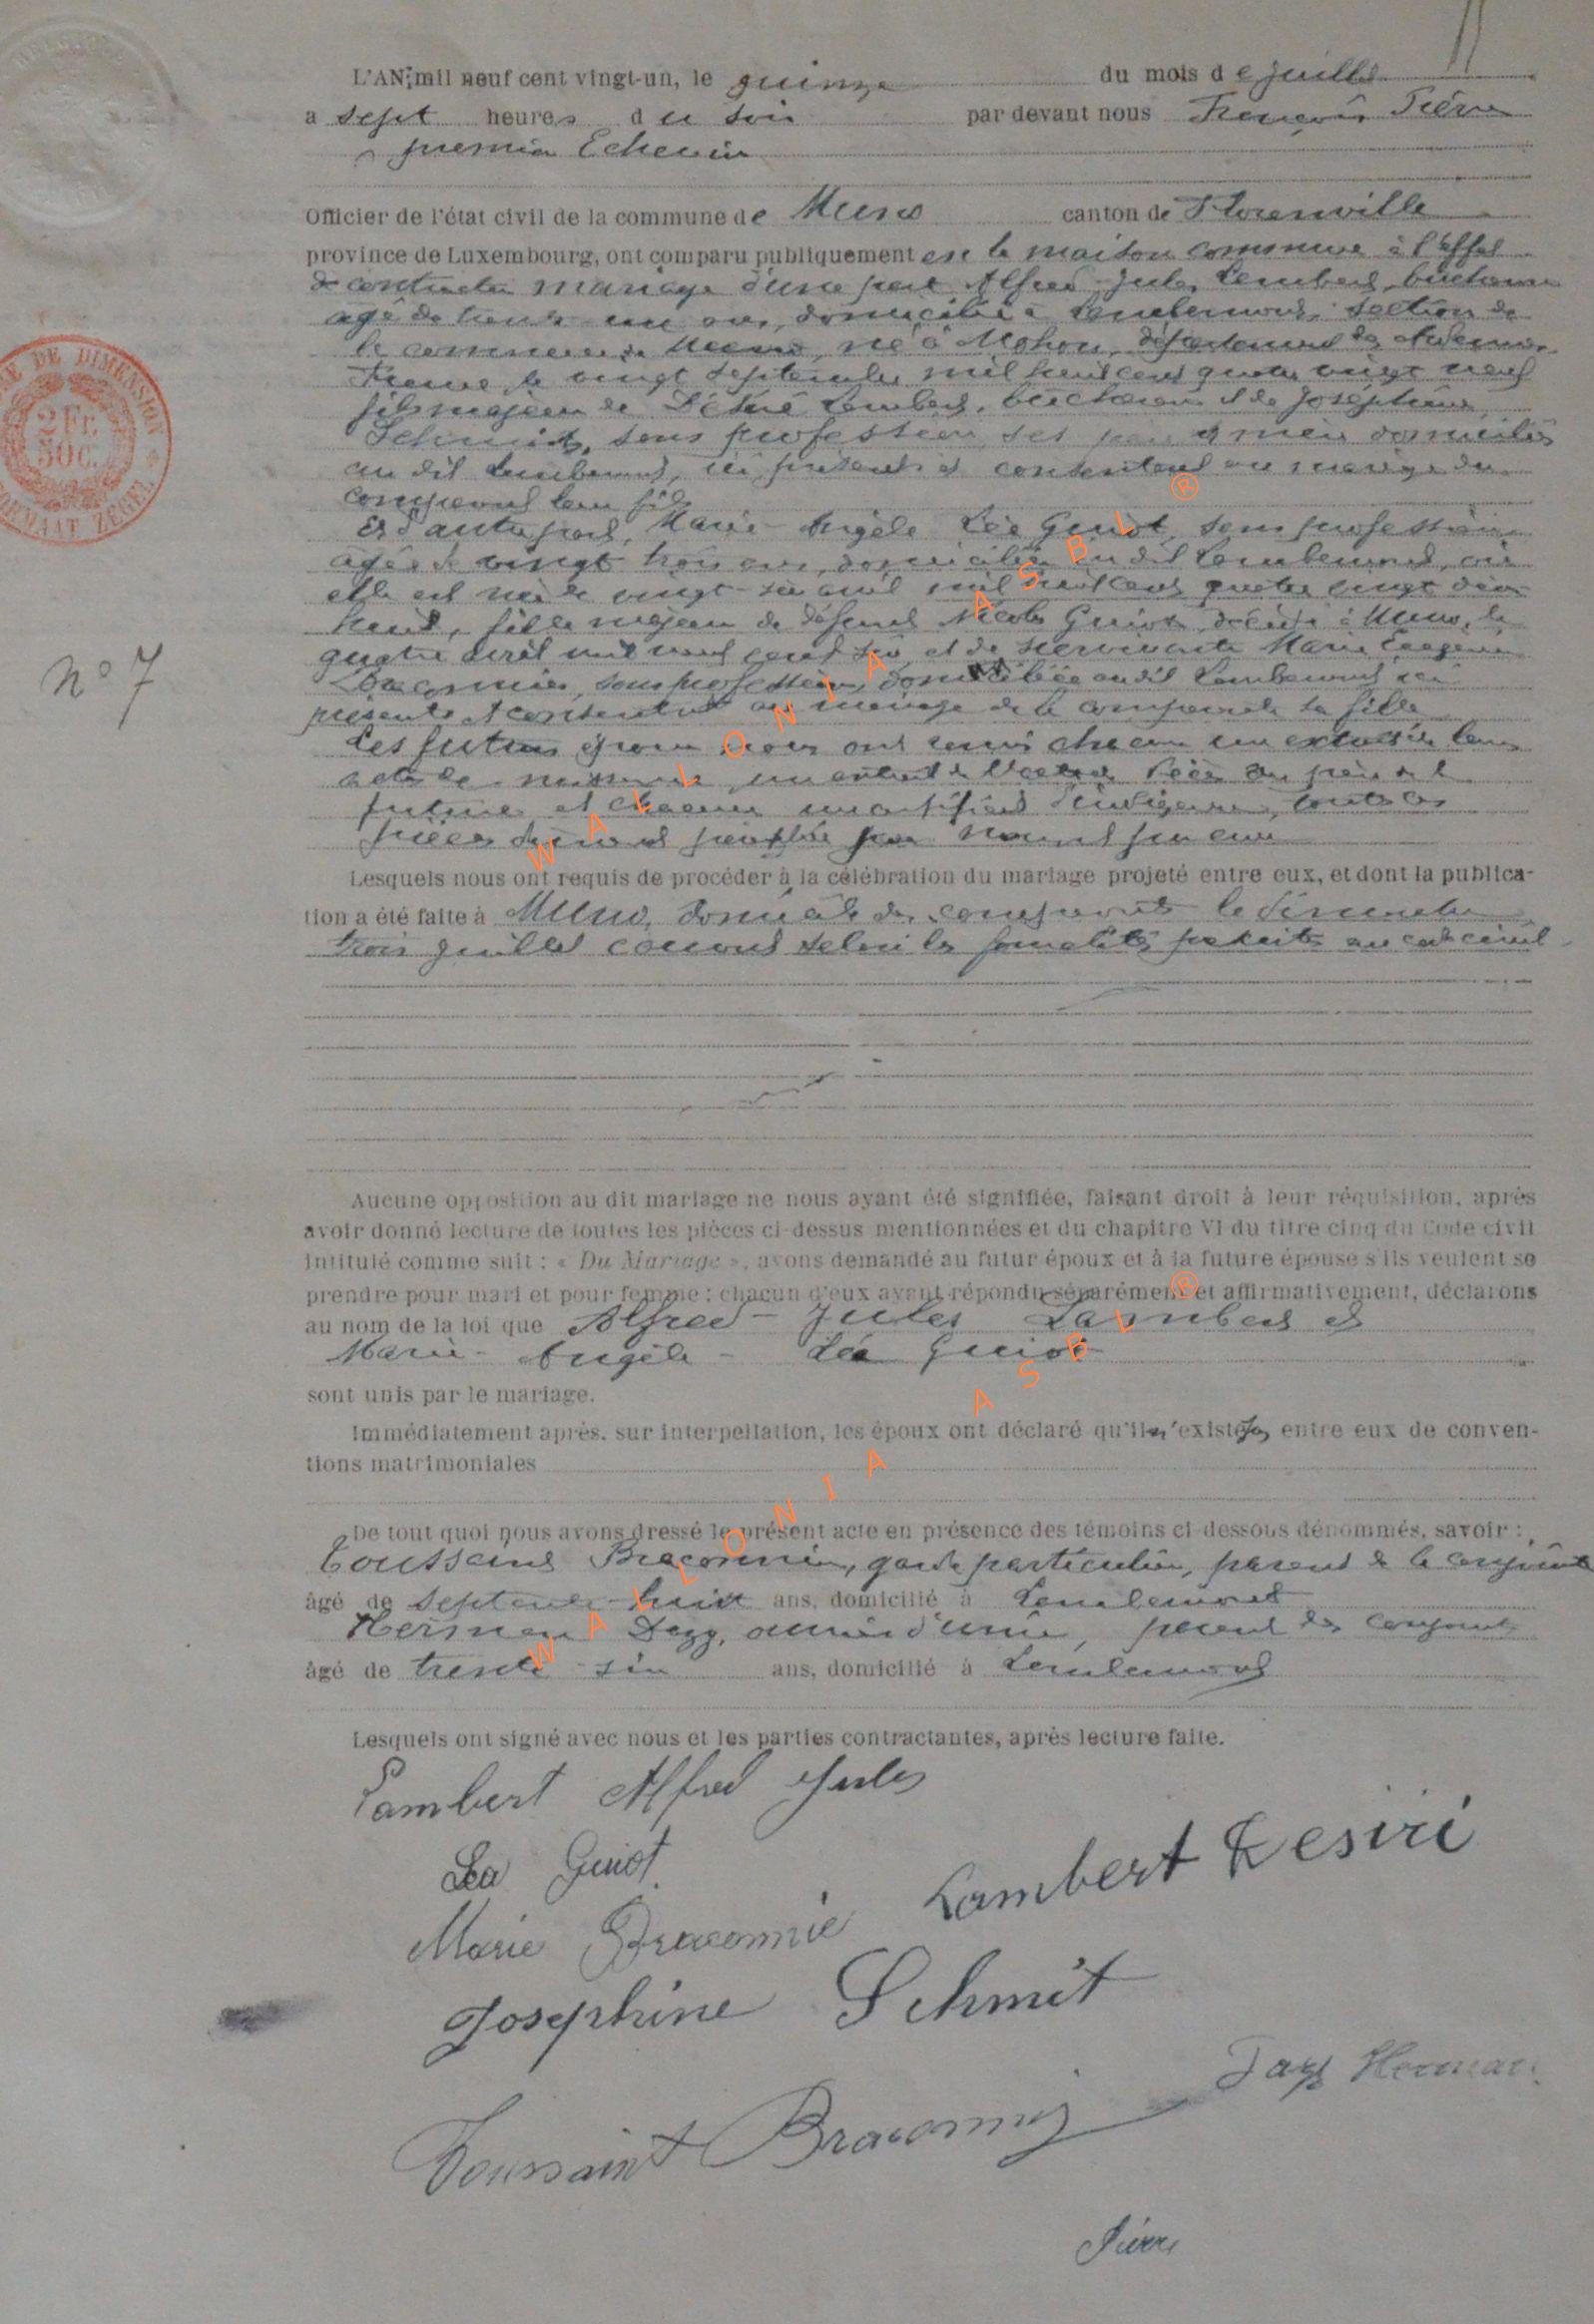 L'AN mil neuf cent vingt-un, le quinze du mois de juillet
a sept heures du soir par devant nous François Pierre
premier Echevin
Officier de l'état civil de la commune de Muno canton de Florenville
province de Luxembourg, ont comparu publiquement en la maison commune à l'effet
de contracter mariage d'une part Alfred Jules Lambert, bûcheron
agé de trente un ans, domicilié à Lambermont, section de
la commune de Muno, né à Mohon, département des Ardennes
France le vingt septembre mil huit cent quatre vingt neuf
fils majeur de Désiré Lambert, bûcheron et de Joséphine
Schmit, sans profession, ses père et mère domiciliés
au dit Lambermont, ici présents et consentant au mariage du
comparant leur fils
Et d'autre part, Marie Angèle Léa Guiot, sans profession
agée de vingt trois ans, domiciliée au dit Lambermont, où
elle est née le vingt-six avril mil huit cent quatre vingt dix
huit, fille majeure de défunt Nicolas Guiot, décédé à Muno, le
quatre avril mil neuf cent six et de survivante Marie Eugénie
Braconnier, sans profession, domiciliée au dit Lambermont ici
présente et consentant au mariage de la comparante sa fille
Les futurs époux nous ont remis chacun un extrait de leur
acte de naissance, un extrait de l'acte de décès du père de la
future et chacun un certificat d'indigence, toutes ces
pièces dûment paraphées par nous et par eux
Lesquels nous ont requis de procéder à la célébration du mariage projeté entre eux, et dont la publica-
tion a été faite à Muno, domicile des comparants le dimanche
trois juillet courant selon les formalités prescrites au code civil
N° 7
Aucune opposition au dit mariage ne nous ayant été signifiée, faisant droit à leur réquisition, après
avoir donné lecture de toutes les pièces ci-dessus mentionnées et du chapitre VI du titre cinq du Code civil
intitulé comme suit : « Du Mariage », avons demandé au futur époux et à la future épouse s'ils veulent se
prendre pour mari et pour femme : chacun d'eux ayant répondu séparément et affirmativement, déclarons
au nom de la loi que Alfred - Jules Lambert et
Marie - Angèle - Léa Guiot
sont unis par le mariage.
Immédiatement après, sur interpellation, les époux ont déclaré qu'il n'existe pas entre eux de conven-
tions matrimoniales
De tout quoi nous avons dressé le présent acte en présence des témoins ci-dessous dénommés, savoir :
Toussaint Braconnier, garde particulier, parent de la conjointe
âgé de septante huit ans, domicilié à Lambermont
Herman Dazy, ouvrier d'usine, parent des conjoints
âgé de trente-six ans, domicilié à Lambermont
Lesquels ont signé avec nous et les parties contractantes, après lecture faite.
Lambert Alfred Jules
Lea Guiot
Lambert Desiré
Marie Braconnié
Josephine Schmit
Dazy Herman
Toussaint Braconnier
Pierre
DE DIMENSION
2 FR.
50 C.
FORMAAT ZEGEL
WALLONIA ASBL ®
WALLONIA ASBL ®